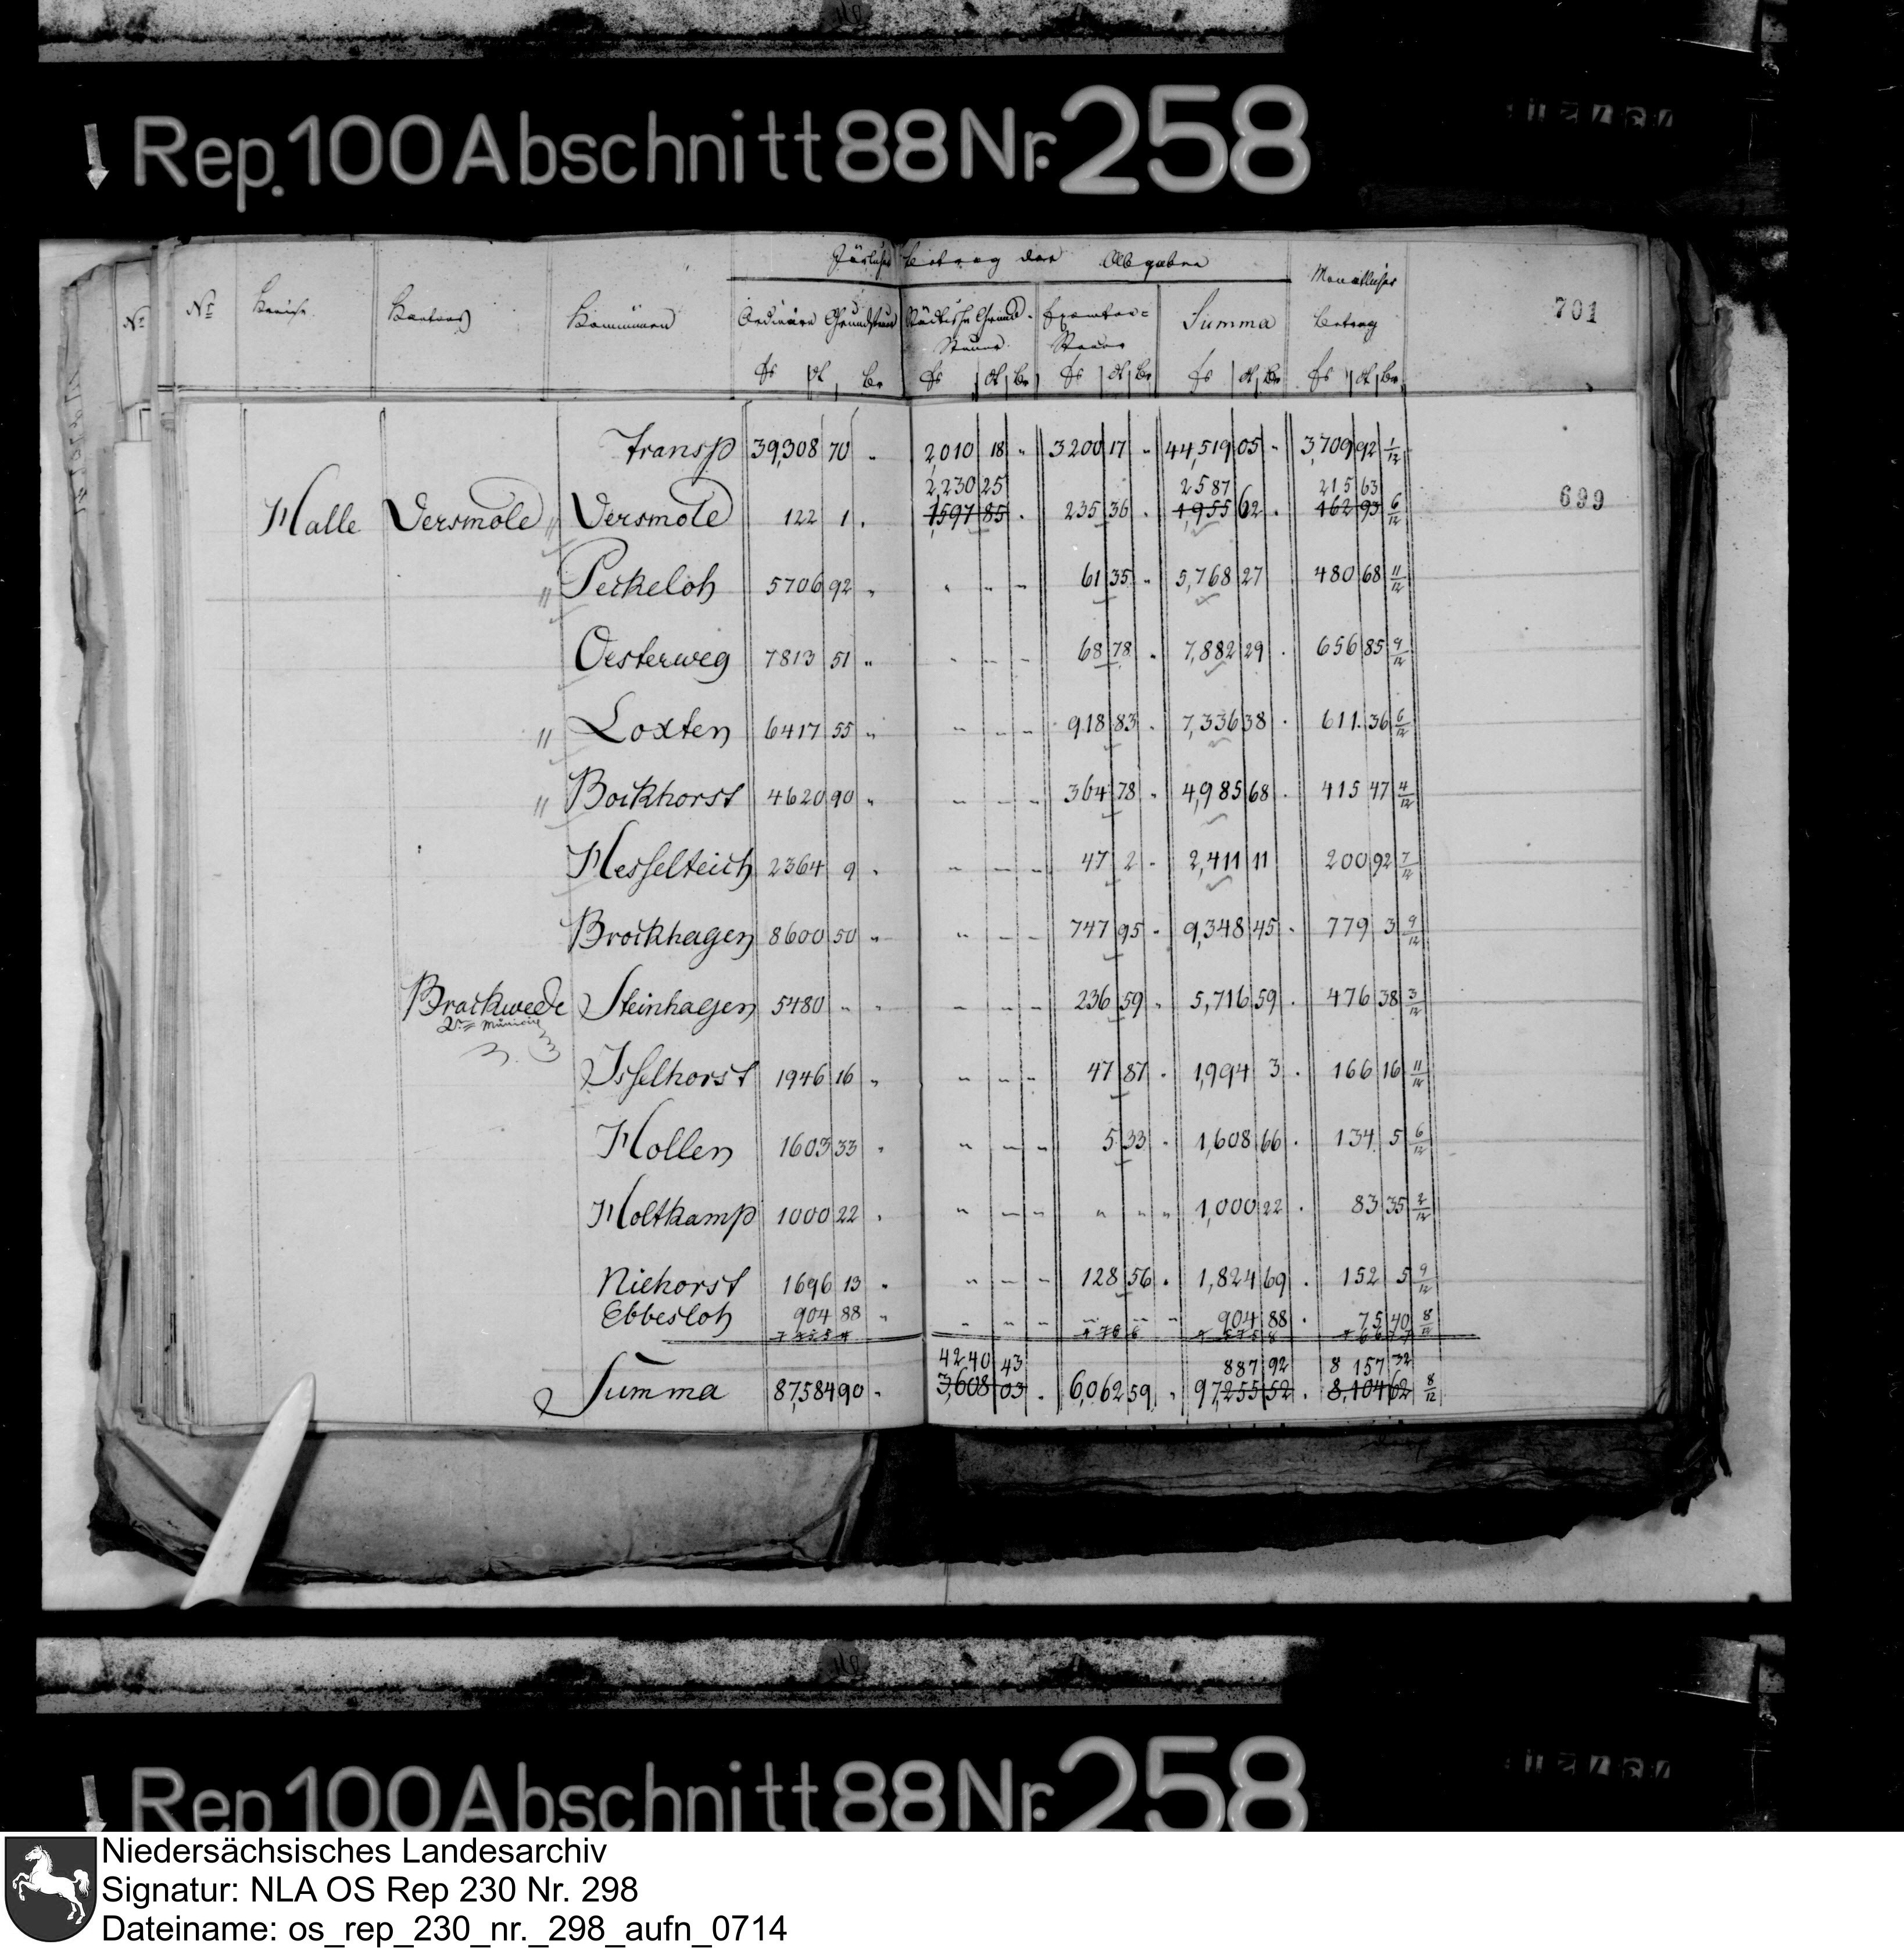 Rep. 100 Abschnitt 88 Nr. 258
701
Jährlicher Betrag der Abgaben
Monatlicher
Nr Nr Kreise Kantons Kommunen Ordinäre Grundsteuer Städtische Grund- Exemten= Summa Betrag
Steuer Steuer
Transp 39,308 70 " 2,010 18 " 3200 17 " 44,519 05 " 3,709 92 1/12
2,230 25 2587 215 63
699
Halle Versmole " Versmole 122 1 . 1,597 85 . 235 36 . 1,955 62 . 162 93 6/12
" Peckeloh 5706 92 " " " " 61 35 " 5,768 27 480 68 11/12
Oesterweg 7813 51 " " " " 68 78 . 7,882 29 . 656 85 9/12
" Loxten 6417 55 " " " " 918 83 . 7,336 38 . 611 36 6/12
" Bockhorst 4620 90 " " " " 364 78 " 4,985 68 . 415 47 4/12
Hesselteich 2364 9 . " " " 47 2 " 2,411 11 200 92 7/12
Brockhagen 8600 50 " " " " 747 95 " 9,348 45 . 779 3 9/12
Brackwede Steinhagen 5480 " " " " " 236 59 " 5,716 59 . 476 38 3/12
Isselhorst 1946 16 " " " " 47 87 . 1,994 3 . 166 16 11/12
Hollen 1603 33 . " " " 5 33 . 1,608 66 . 134 5 6/12
Holtkamp 1000 22 . " " " " " " 1,000 22 . 83 35 2/12
Niehorst 1696 13 . " " " 128 56 . 1,824 69 . 152 5 9/12
Ebbesloh 904 88 " " " " " " " 904 88 . 75 40 8/12
4240 43 887 92 8 157 32
Summa 87,584 90 . 3,608 03 . 6,062 59 . 97,255 52 . 8,104 62 8/12
Rep 100 Abschnitt 88 Nr. 258
Niedersächsisches Landesarchiv
Signatur: NLA OS Rep 230 Nr. 298
Dateiname: os_rep_230_nr._298_aufn_0714